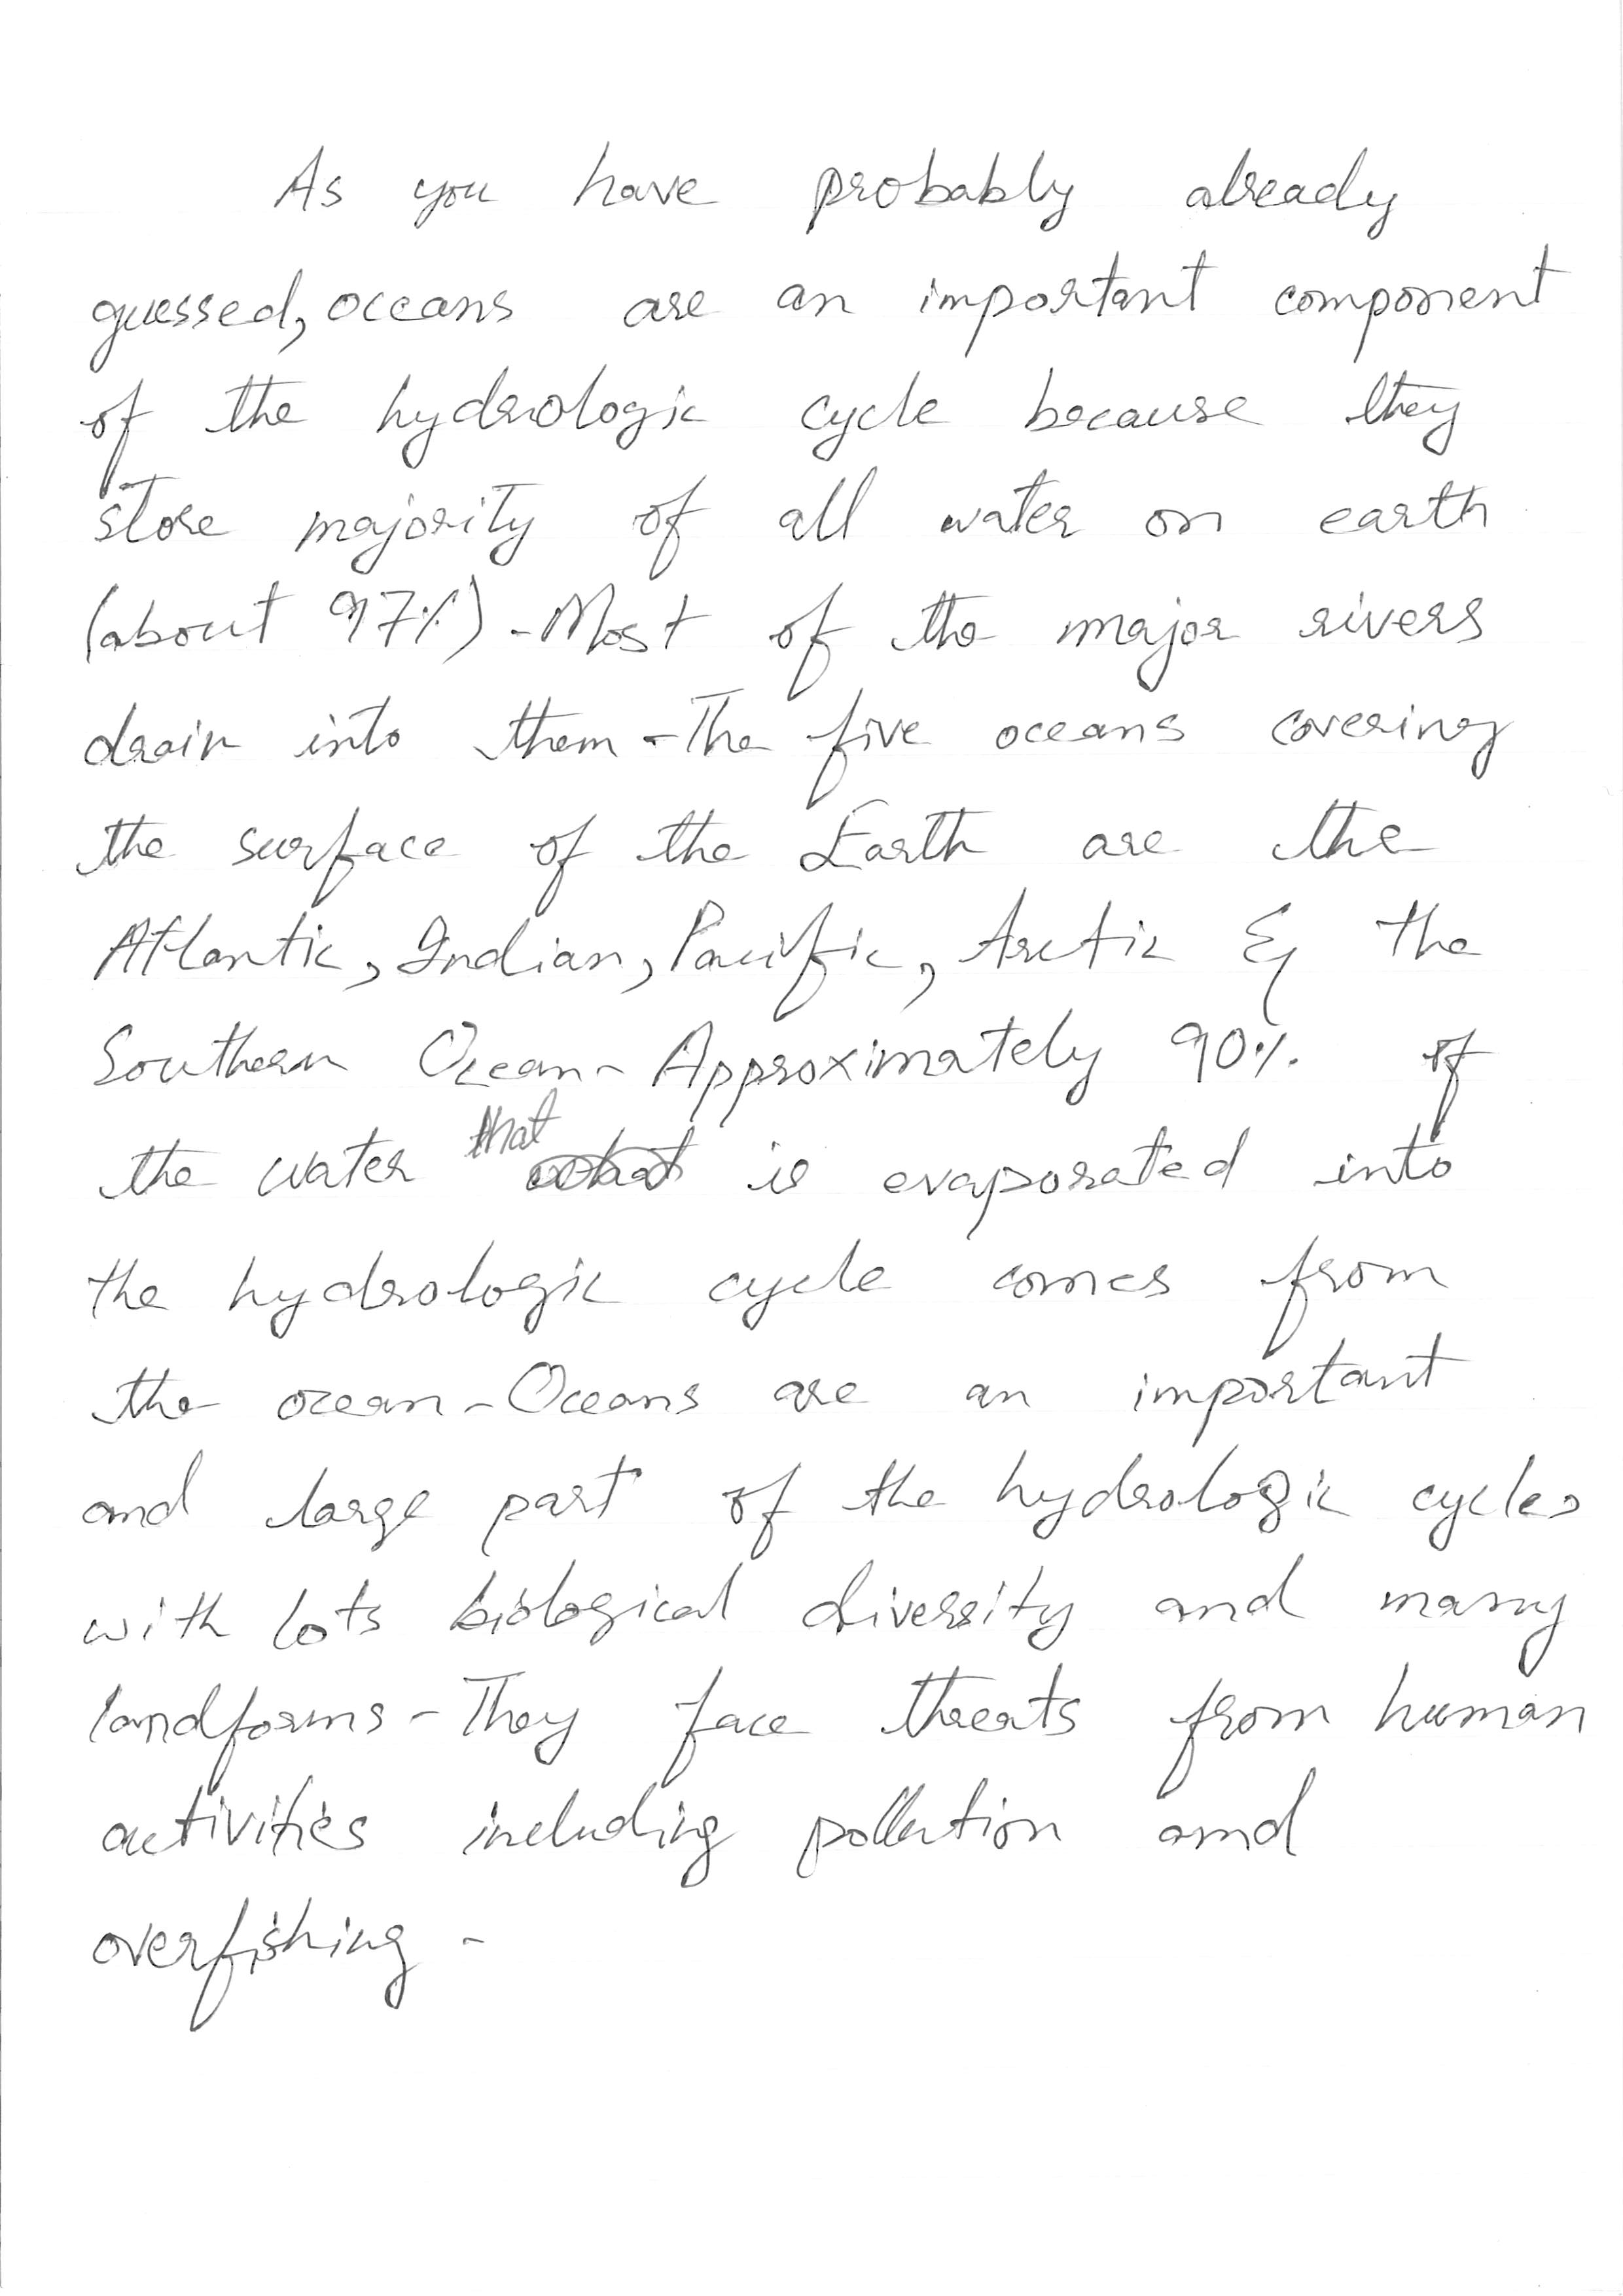 As you have probably already
guessed, oceans are an important component
of the hydrologic cycle because they
store majority of all water on earth
(about 97%) - Most of the major rivers
drain into them - The five oceans covering
the surface of the Earth are the
Atlantic, Indian, Pacific, Arctic & the
Southern Ocean - Approximately 90% of
the water that is evaporated into
the hydrologic cycle comes from
the ocean - Oceans are an important
and large part of the hydrologic cycle,
with lots biological diversity and many
landforms - They face threats from human
activities including pollution and
overfishing -